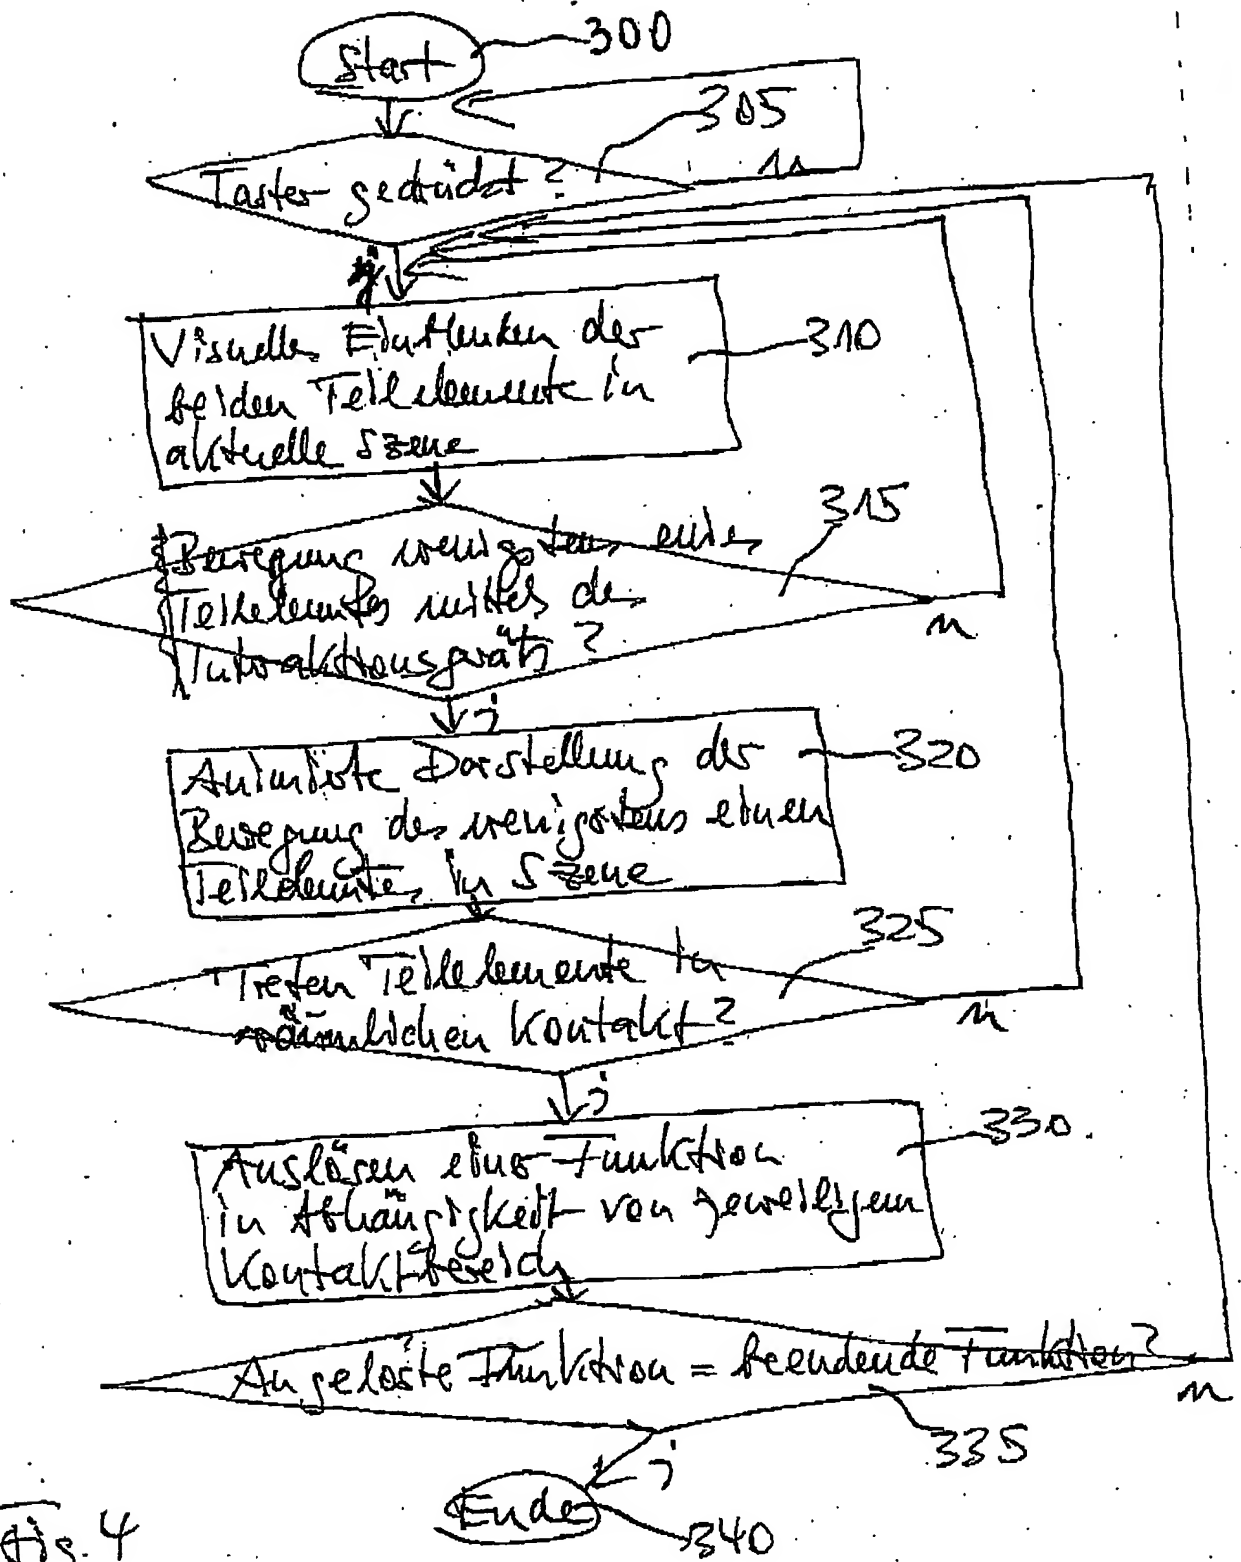 Start
300
305
Taster gedrückt?
n
j
Visuelles Einblenden der
beiden Teilelemente in
aktuelle Szene
310
315
Bewegung wenigstens eines
Teilelementes mittels des
Interaktionsgeräts?
n
j
Animierte Darstellung der
Bewegung des wenigstens einen
Teilelementes in Szene
320
325
Treten Teilelemente in
räumlichen Kontakt?
n
j
Auslösen einer Funktion
in Abhängigkeit von jeweiligem
Kontaktbereich
330
Ausgelöste Funktion = beendende Funktion?
n
j
335
Ende
340
Fig. 4